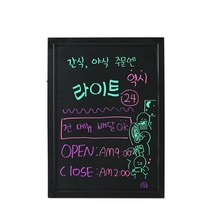 간식, 야식 주문엔
역시
라이트
24
전 메뉴 배달 OK
OPEN : AM9:00
CLOSE : AM2:00